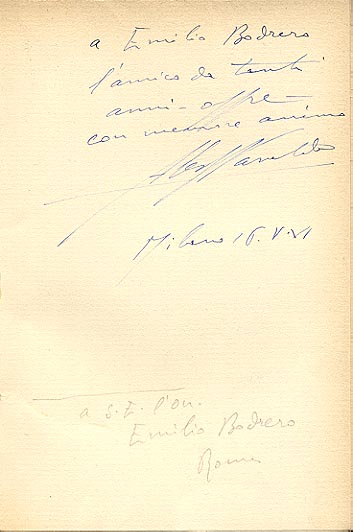 a Emilio Bodrero
l'amico da tanti
anni - offre
con memore animo
Milano 16.V.XI
a S.E. l'on.
Emilio Bodrero
Roma